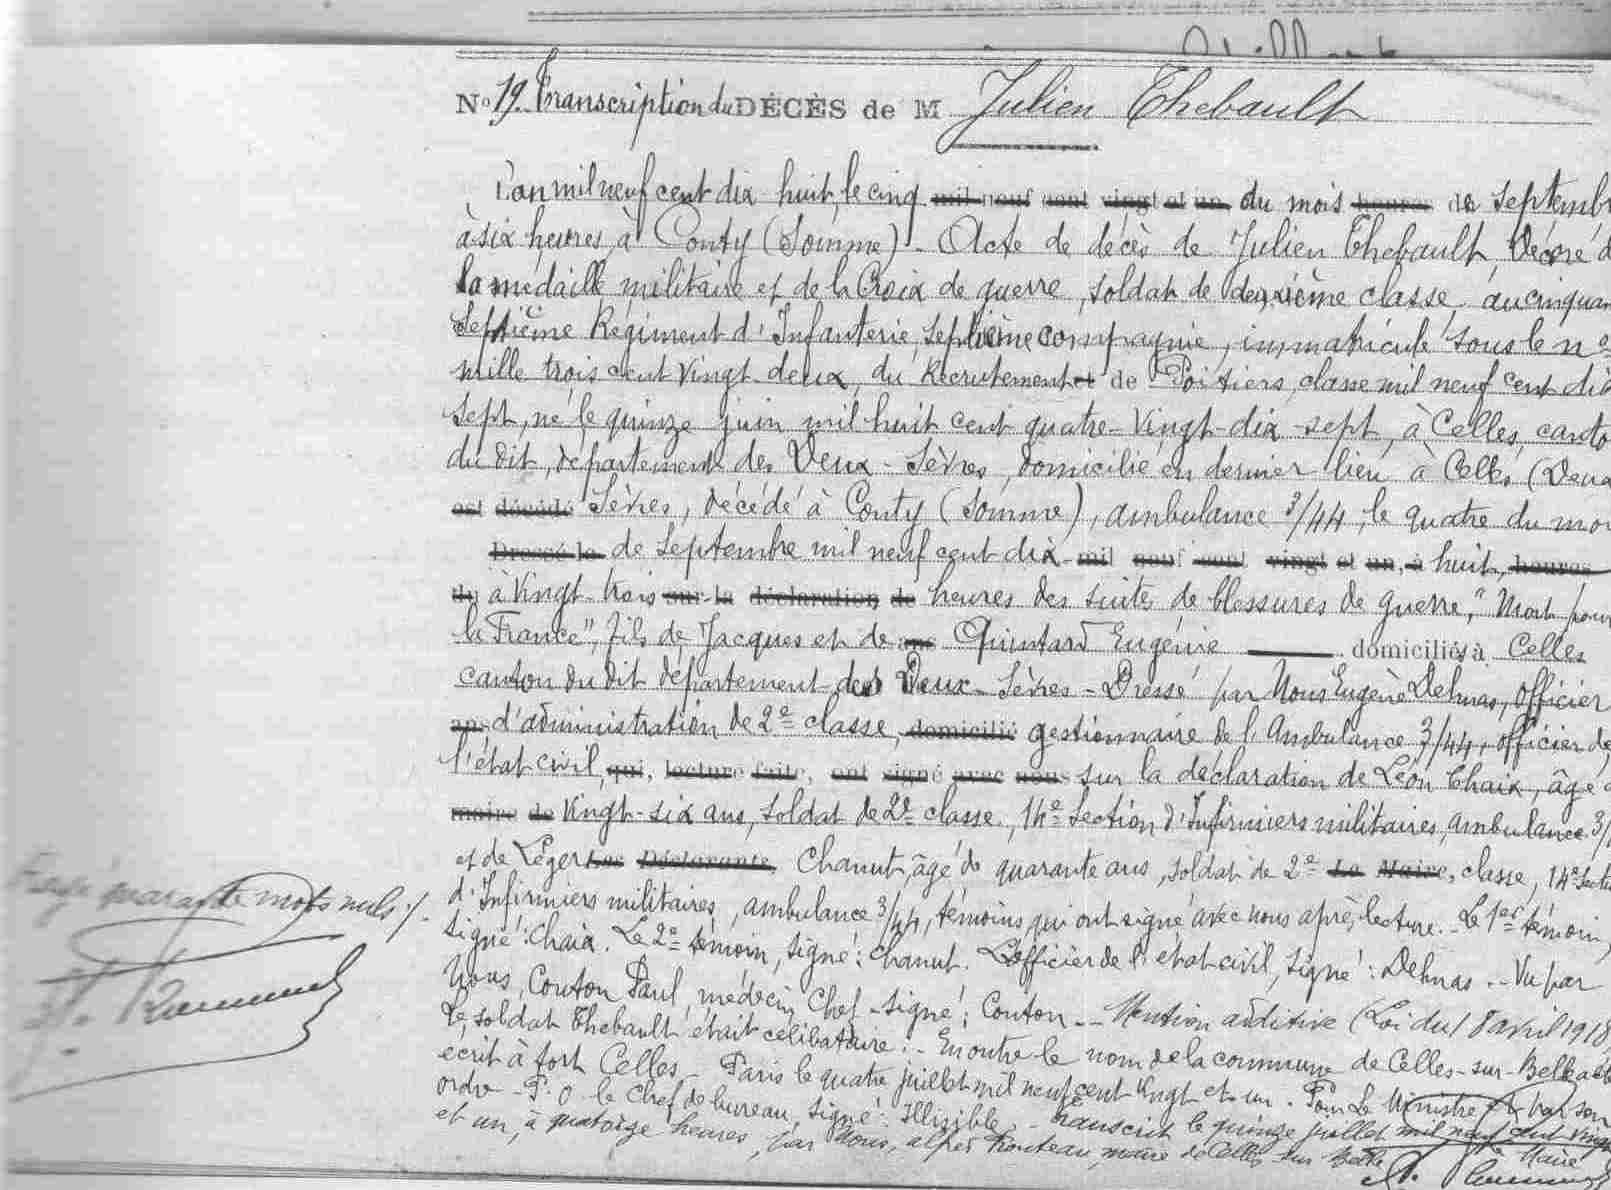 No 19. Transcription du DÉCÈS de M Julien Thebault
L'an mil neuf cent dix huit, le cinq mil neuf cent vingt et un du mois heures de septembr
à six heures, à Conty (Somme). Acte de décès de Julien Thebault, Décoré d
la médaille militaire et de la Croix de guerre, soldat de deuxième classe au cinquan
septième Régiment d'Infanterie, septième compagnie, immatriculé sous le n°
mille trois cent vingt-deux, du Recrutement et de Poitiers, classe mil neuf cent dix
sept, né le quinze juin mil huit cent quatre-vingt-dix-sept, à Celles, canto
du dit, département des Deux-Sèvres, domicilié en dernier lieu à Celles (Deux
est décédé Sèvres, décédé à Conty (Somme), ambulance 3/44, le quatre du moi
Dressé le de septembre mil neuf cent dix- mil neuf cent vingt et un, à huit, heures
du à vingt-trois sur la déclaration de heures des suites de blessures de guerre, "Mort pour
la France", fils de Jacques et de Quintard Eugénie domiciliés à Celles
canton du dit département des Deux-Sèvres - Dressé par Nous Eugène Delmas, officier
ans d'administration de 2e classe, domicilié gestionnaire de l'Ambulance 3/44, officier de
l'état civil, qui, lecture faite, ont signé avec nous sur la déclaration de Léon Chaix, âgé d
maire de vingt-six ans, soldat de 2e classe, 14e Section d'Infirmiers militaires, ambulance 3/
et de Léger Les Déclarants, Chanut, âgé de quarante ans, soldat de 2e Le Maire, classe, 14e Secti
d'Infirmiers militaires, ambulance 3/44, témoins qui ont signé avec nous après lecture. Le 1er témoin,
signé: Chaix. Le 2e témoin, signé: Chanut. L'officier de l'état civil, signé: Delmas. - Vu par
Nous, Couton Paul, médecin Chef - signé: Couton. - Mention additive (Loi du 18 avril 1918
Le soldat Thebault était célibataire. - En outre le nom de la commune de Celles-sur-Belle a été
écrit à tort Celles - Paris le quatre juillet mil neuf cent vingt et un. Pour Le Ministre et par son
ordre - P.O. le Chef de bureau, signé: Illisible. - Transcrit le quinze juillet mil neuf cent vingt
et un, à quatorze heures, par Nous, maire de Celles sur Belle
Le Maire
Rayé quarante mots nuls